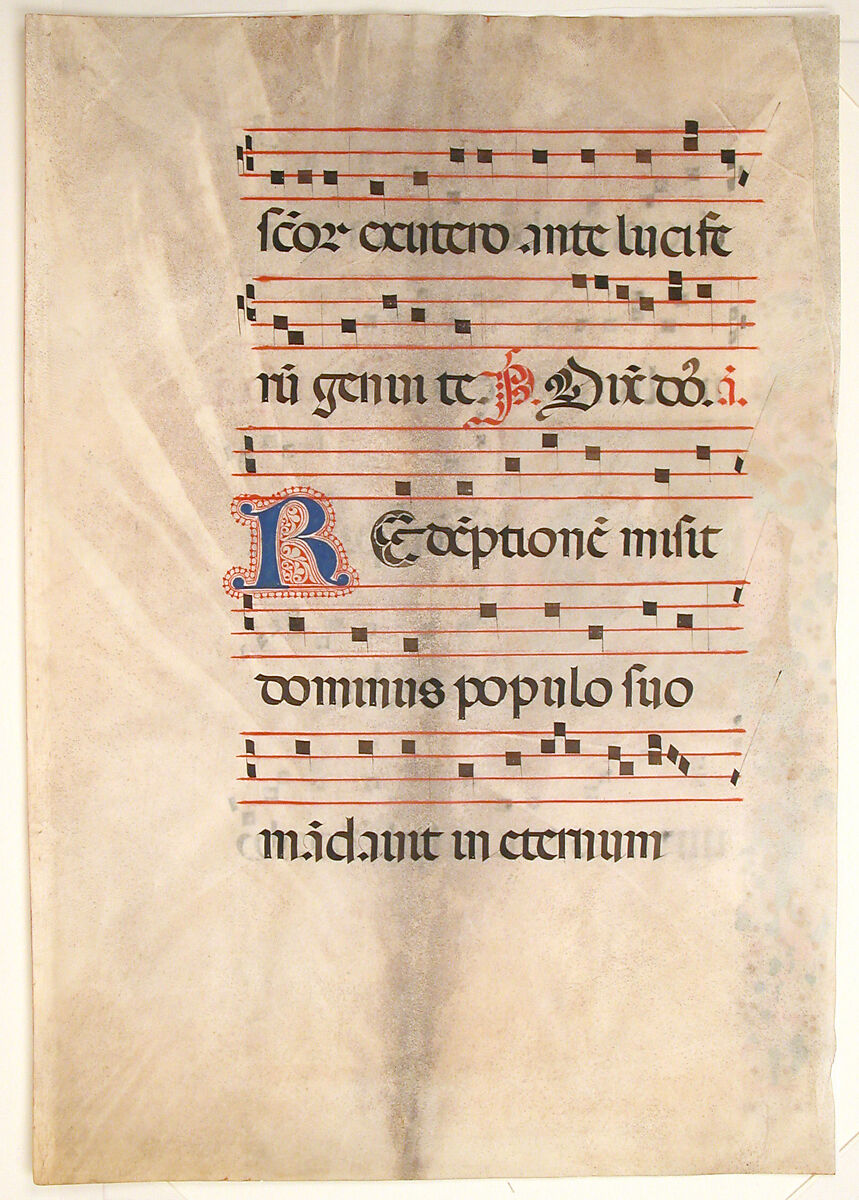 sc̄or ex utero ante lucife
rū genui te. P̄. Dix̄ dō. ā.
REdēptionē misit
dominus populo suo
mādauit in eternum